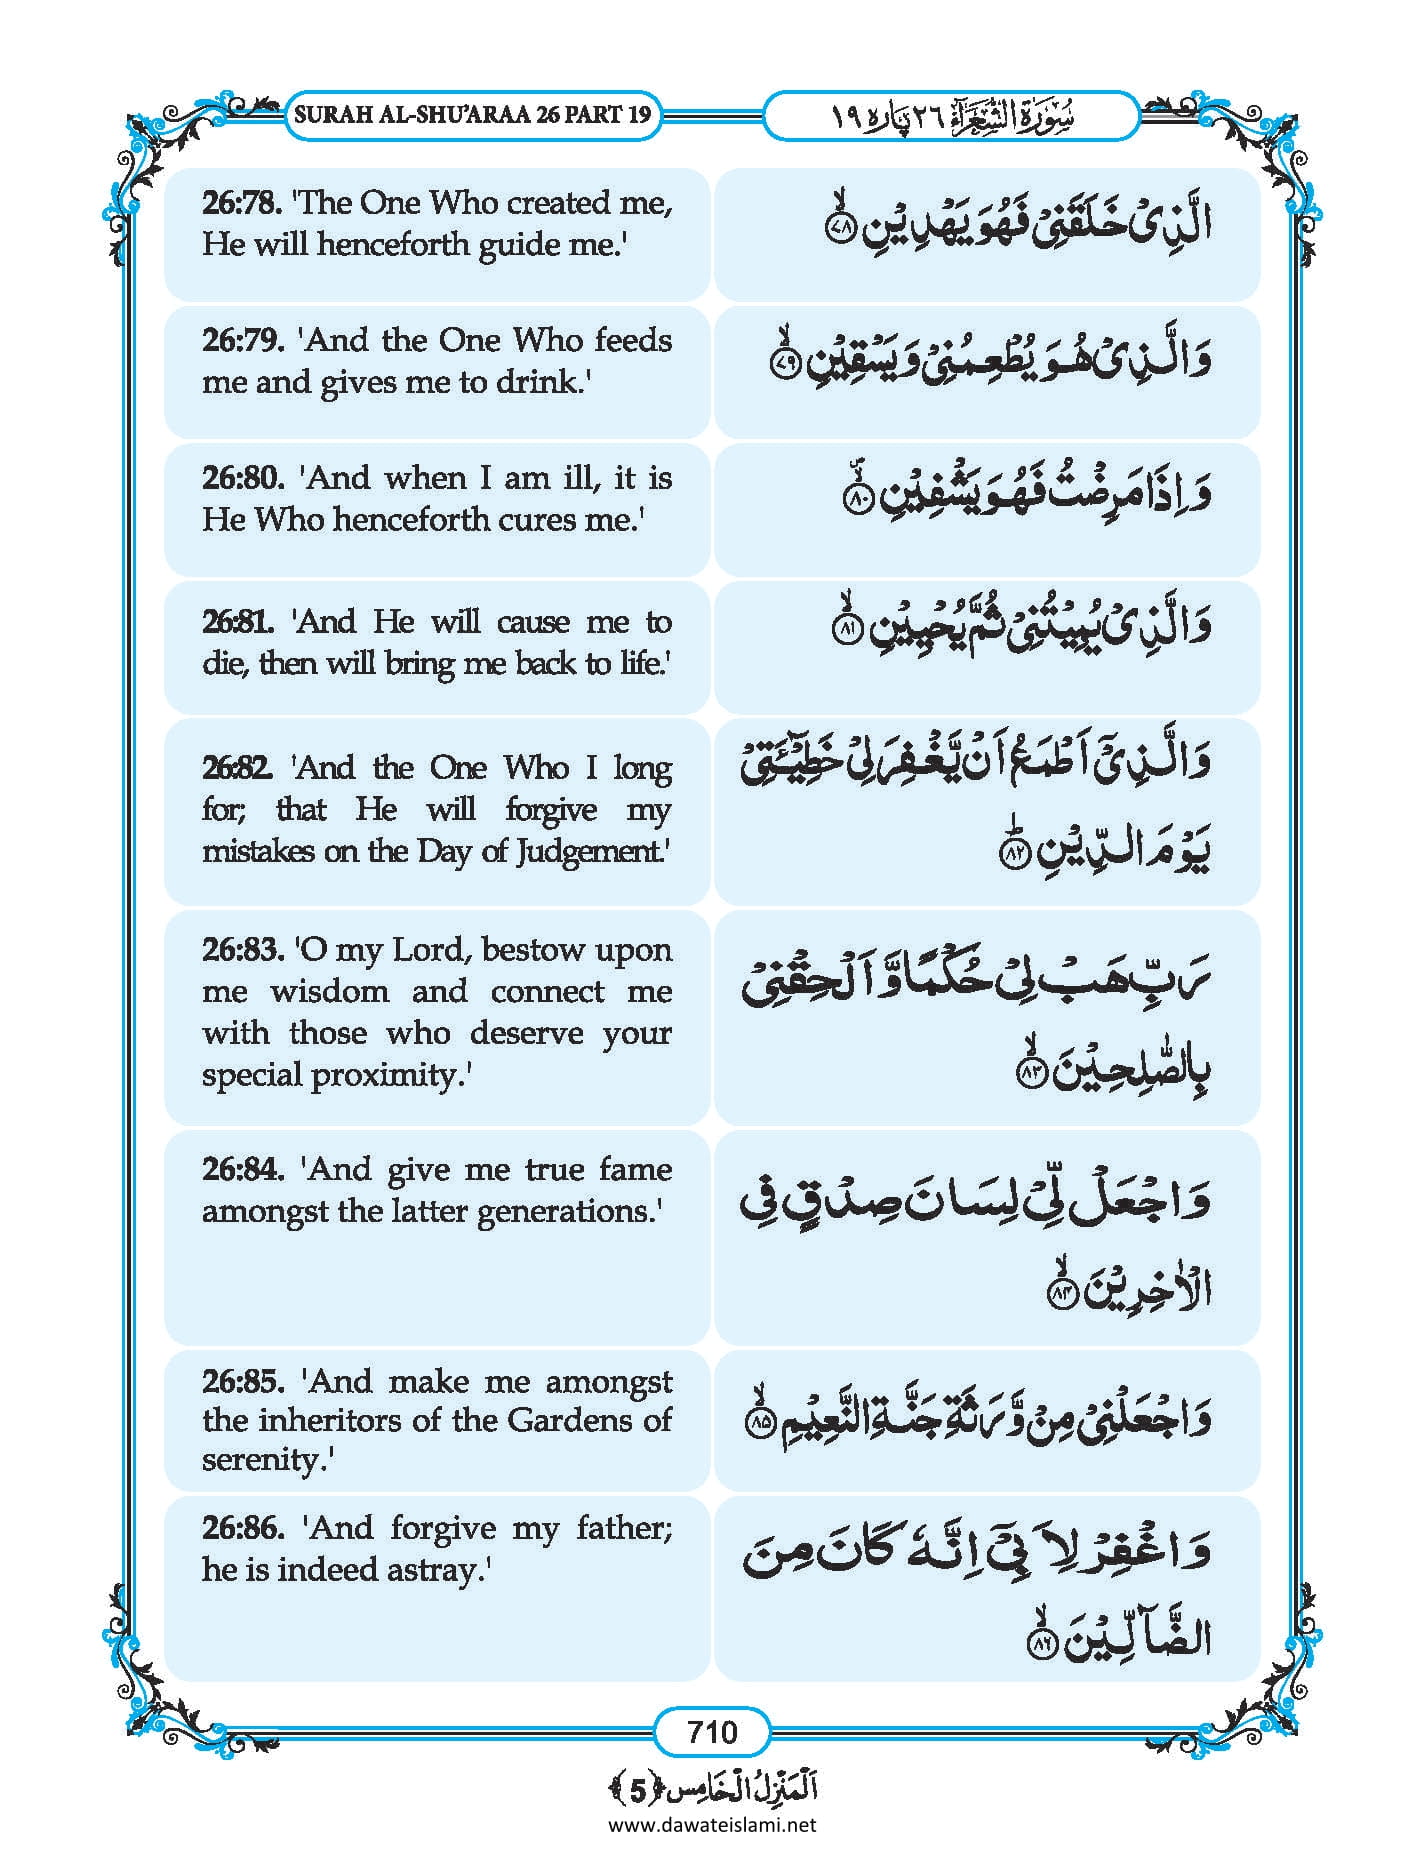 SURAH AL-SHU’ARAA 26 PART 19
سُوْرَةُ الشُّعَرَآءِ ٢٦ پَارہ ١٩
26:78. 'The One Who created me,
He will henceforth guide me.'
الَّذِیْ خَلَقَنِیْ فَهُوَ یَهْدِیْنِ ﴿ۙ۷۸﴾
26:79. 'And the One Who feeds
me and gives me to drink.'
وَالَّذِیْ هُوَ یُطْعِمُنِیْ وَیَسْقِیْنِ ﴿ۙ۷۹﴾
26:80. 'And when I am ill, it is
He Who henceforth cures me.'
وَ اِذَا مَرِضْتُ فَهُوَ یَشْفِیْنِ ﴿۪ۙ۸۰﴾
26:81. 'And He will cause me to
die, then will bring me back to life.'
وَالَّذِیْ یُمِیْتُنِیْ ثُمَّ یُحْیِیْنِ ﴿ۙ۸۱﴾
26:82. 'And the One Who I long
for; that He will forgive my
mistakes on the Day of Judgement.'
وَالَّذِیْۤ اَطْمَعُ اَنْ یَّغْفِرَ لِیْ خَطِیْٓـَٔتِیْ
یَوْمَ الدِّیْنِ ﴿ؕ۸۲﴾
26:83. 'O my Lord, bestow upon
me wisdom and connect me
with those who deserve your
special proximity.'
رَبِّ هَبْ لِیْ حُكْمًا وَّ اَلْحِقْنِیْ
بِالصّٰلِحِیْنَ ﴿ۙ۸۳﴾
26:84. 'And give me true fame
amongst the latter generations.'
وَاجْعَلْ لِّیْ لِسَانَ صِدْقٍ فِی
الْاٰخِرِیْنَ ﴿ۙ۸۴﴾
26:85. 'And make me amongst
the inheritors of the Gardens of
serenity.'
وَاجْعَلْنِیْ مِنْ وَّرَثَةِ جَنَّةِ النَّعِیْمِ ﴿ۙ۸۵﴾
26:86. 'And forgive my father;
he is indeed astray.'
وَاغْفِرْ لِاَبِیْۤ اِنَّهٗ كَانَ مِنَ
الضَّآلِّیْنَ ﴿ۙ۸۶﴾
710
اَلْمَنْزِلُ الْخَامِس ﴿5﴾
www.dawateislami.net